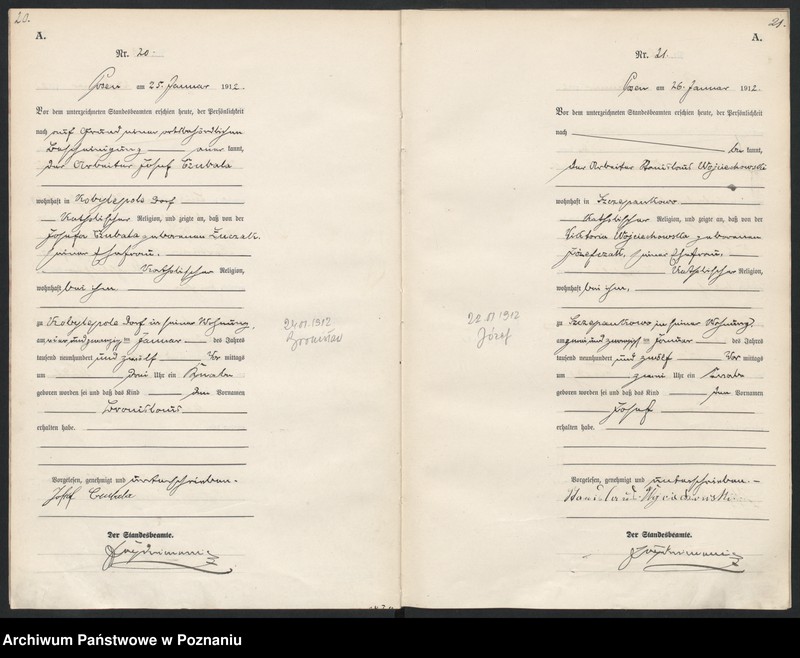 20.
A.
Nr. 20.
Posen am 25. Januar 1912.
Vor dem unterzeichneten Standesbeamten erschien heute, der Persönlichkeit
nach auf Grund einer ortsbehördlichen
Bescheinigung, aner kannt,
der Arbeiter Josef
wohnhaft in Kobylepole Dorf
Katholischer Religion, und zeigte an, daß von der
Josefa geborenen
seiner Ehefrau,
Katholischer Religion,
wohnhaft bei ihm
zu Kobylepole Dorf in seiner Wohnung,
am vier und zwanzig ten Januar des Jahres
tausend neunhundert und zwölf Vor mittags
um drei Uhr ein Knabe
geboren worden sei und daß das Kind den Vornamen
Bronislaus
erhalten habe.
Vorgelesen, genehmigt und unterschrieben.
Josef
Der Standesbeamte.
24.01.1912
Bronisław
21.
A.
Nr. 21.
Posen am 26. Januar 1912.
Vor dem unterzeichneten Standesbeamten erschien heute, der Persönlichkeit
nach
be kannt,
der Arbeiter Stanislaus Wojciechowski
wohnhaft in Szczepankowo
Katholischer Religion, und zeigte an, daß von der
Viktoria Wojciechowska geborenen
Józefczak, seiner Ehefrau,
Katholischer Religion,
wohnhaft bei ihm,
zu Szczepankowo in seiner Wohnung,
am zwei und zwanzigsten Januar des Jahres
tausend neunhundert und zwölf Vor mittags
um zwei Uhr ein Knabe
geboren worden sei und daß das Kind den Vornamen
Josef
erhalten habe.
Vorgelesen, genehmigt und unterschrieben.
Stanislaus Wojciechowski
Der Standesbeamte.
22.01.1912
Józef
Archiwum Państwowe w Poznaniu